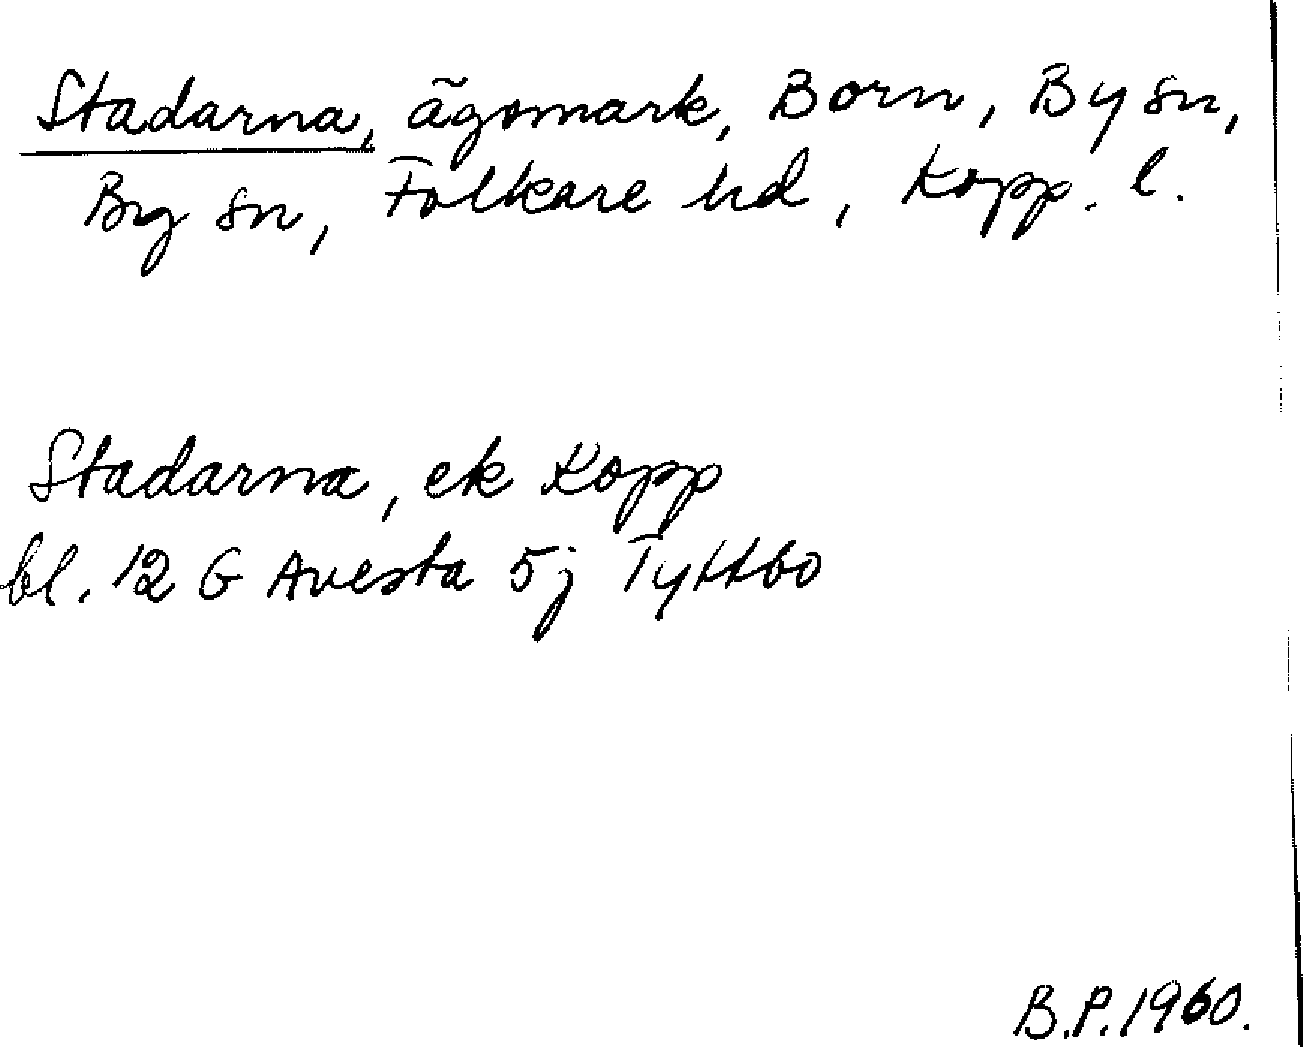 Stadarna, ägomark, Born, By sn,
By sn, Folkare hd, Kopp. l.
Stadarna, ek Kopp
bl. 12 G Avesta 5j Tyttbo
B.P. 1960.